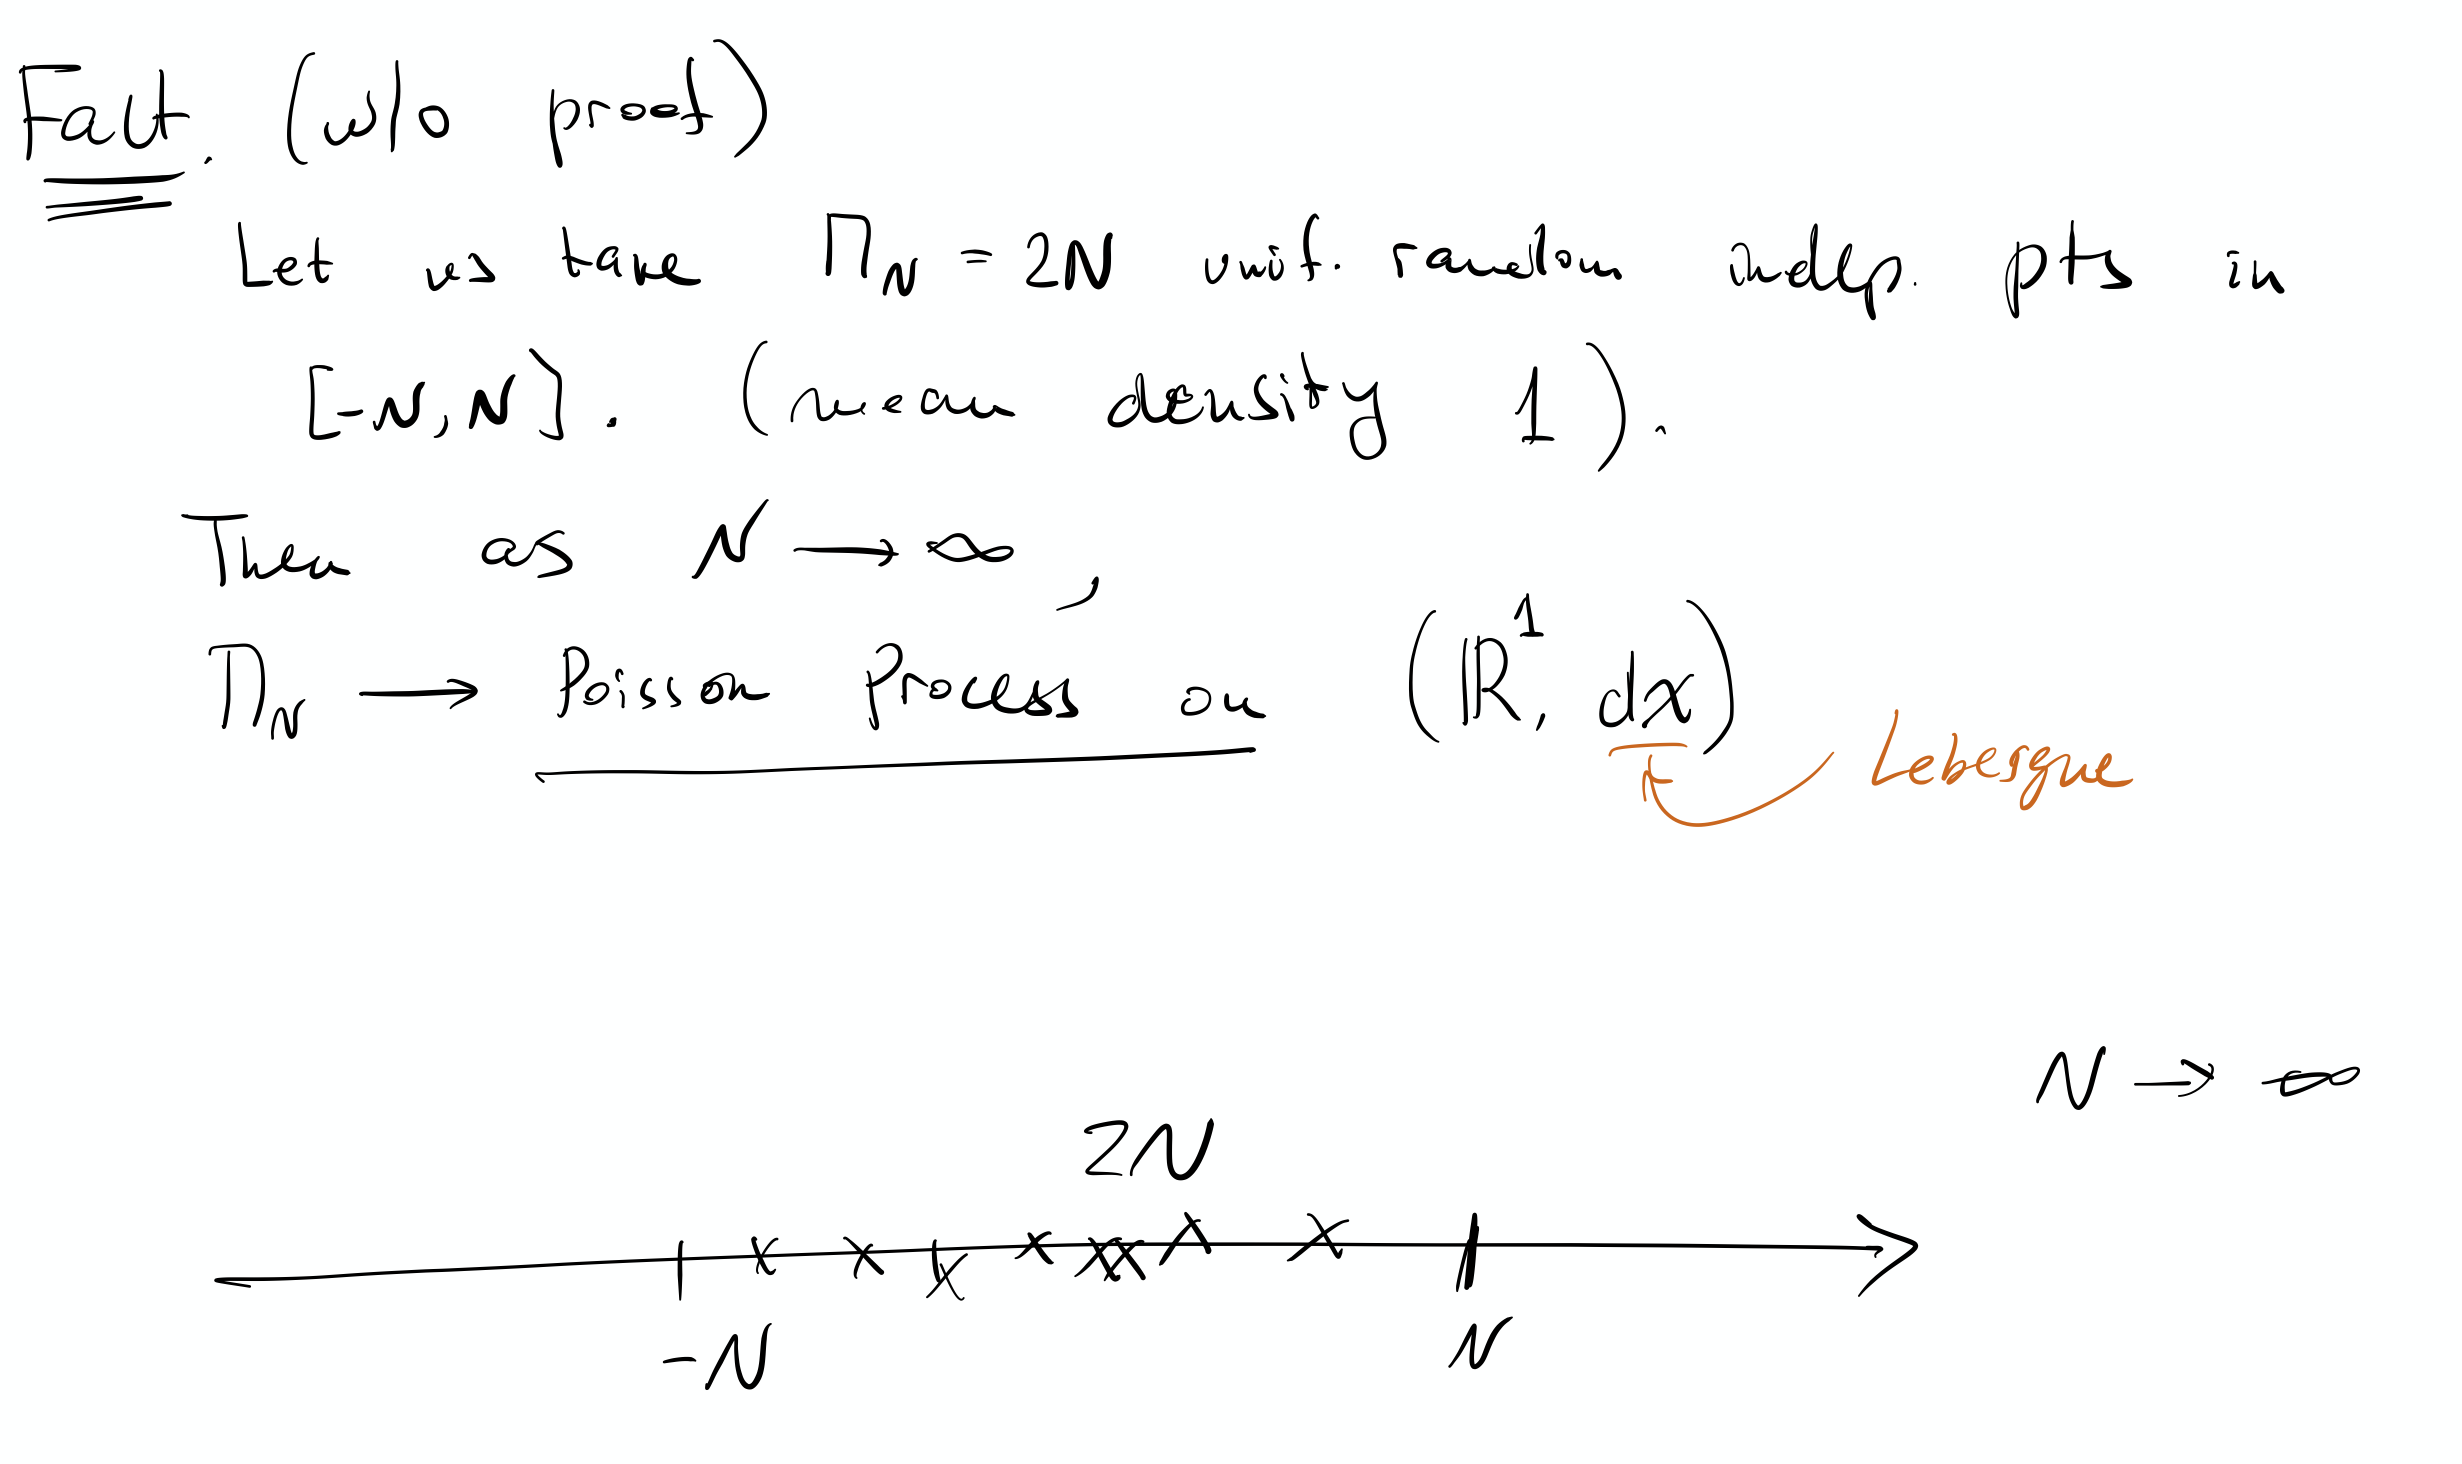 Fact. (w/o proof)
Let us take Π_N = 2N unif. random indep. pts in
[-N, N]. (mean density 1).
Then as N → ∞,
Π_N → Poisson Process on (ℝ¹, dx)
Lebesgue
N → ∞
2N
-N N